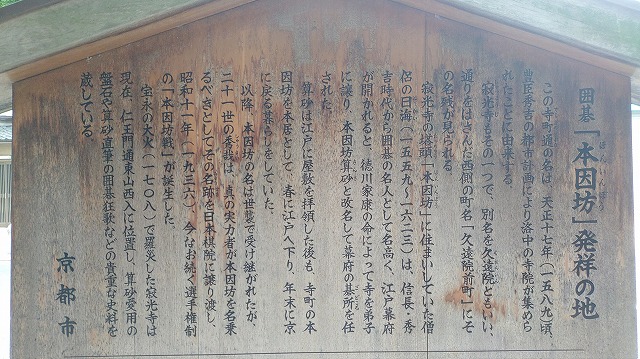 囲碁「本因坊」発祥の地
この寺町通の名は、天正十七年（一五八九）頃、
豊臣秀吉の都市計画により洛中の寺院が集めら
れたことに由来する。
寂光寺もその一つで、別名を久遠院ともいい、
通りをはさんだ西側の町名「久遠院前町」にそ
の名残が見られる。
寂光寺の塔頭「本因坊」に住まいしていた僧
侶の日海（一五五九〜一六二三）は、信長・秀
吉時代から囲碁の名人として名高く、江戸幕府
が開かれると、徳川家康の命によって寺を弟子
に譲り、本因坊算砂と改名して幕府の碁所を任
された。
算砂は江戸に屋敷を拝領した後も、寺町の本
因坊を本居として、春に江戸へ下り、年末に京
に戻る暮らしをしていた。
以降、本因坊の名は世襲で受け継がれたが、
二十一世の秀哉は、真の実力者が本因坊を名乗
るべきとしてその名跡を日本棋院に譲り渡し、
昭和十一年（一九三六）、今なお続く選手権制
の「本因坊戦」が誕生した。
宝永の大火（一七〇八）で罹災した寂光寺は
現在、仁王門通東山西入に位置し、算砂愛用の
盤石や算砂直筆の囲碁狂歌などの貴重な史料を
蔵している。
京都市